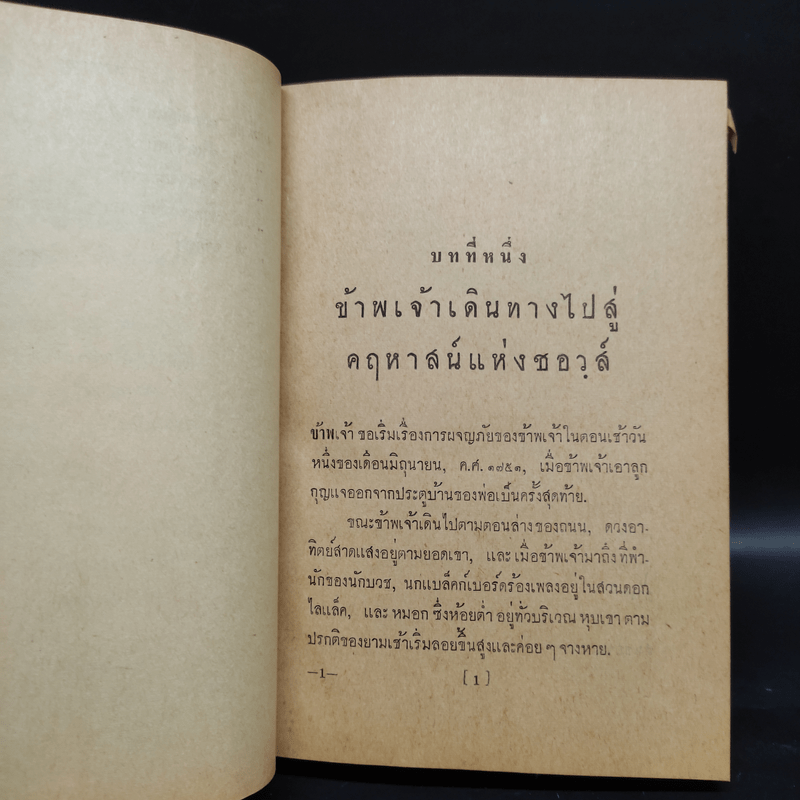 บทที่หนึ่ง
ข้าพเจ้าเดินทางไปสู่
คฤหาสน์แห่งชอวฺส์
ข้าพเจ้า ขอเริ่มเรื่องการผจญภัยของข้าพเจ้าในตอนเช้าวัน
หนึ่งของเดือนมิถุนายน, ค.ศ. ๑๗๕๑, เมื่อข้าพเจ้าเอาลูก
กุญแจออกจากประตูบ้านของพ่อเป็นครั้งสุดท้าย.
ขณะข้าพเจ้าเดินไปตามตอนล่างของถนน, ดวงอา-
ทิตย์สาดแสงอยู่ตามยอดเขา, และ เมื่อข้าพเจ้ามาถึง ที่พำ-
นักของนักบวช, นกแบล็คก์เบอร์ดร้องเพลงอยู่ในสวนดอก
ไลแล็ค, และ หมอก ซึ่งห้อยต่ำ อยู่ทั่วบริเวณ หุบเขา ตาม
ปรกติของยามเช้าเริ่มลอยขึ้นสูงและค่อย ๆ จางหาย.
—1— [ 1 ]